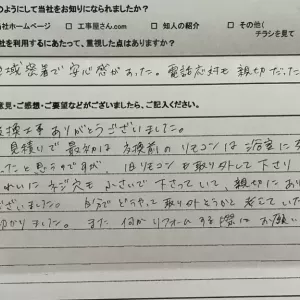 のようにして当社をお知りになられましたか？
当社ホームページ □ 工事屋さん.com □ 知人の紹介 □ その他（
チラシを見て
社を利用するにあたって、重視した点はありますか？
域密着で安心感があった。電話応対も親切だった
意見・ご感想・ご要望などがございましたら、ご記入ください。
換工事ありがとうございました。
見積りで最初は交換前のリモコンは浴室に
たと思うのですが、旧リモコンも取り外して下さり
れいにネジ穴もふさいで下さっていて、親切にあり
ございました。自分でどうやって取り外そうかと考えていた
助かりました。また何かリフォームする際はお願い